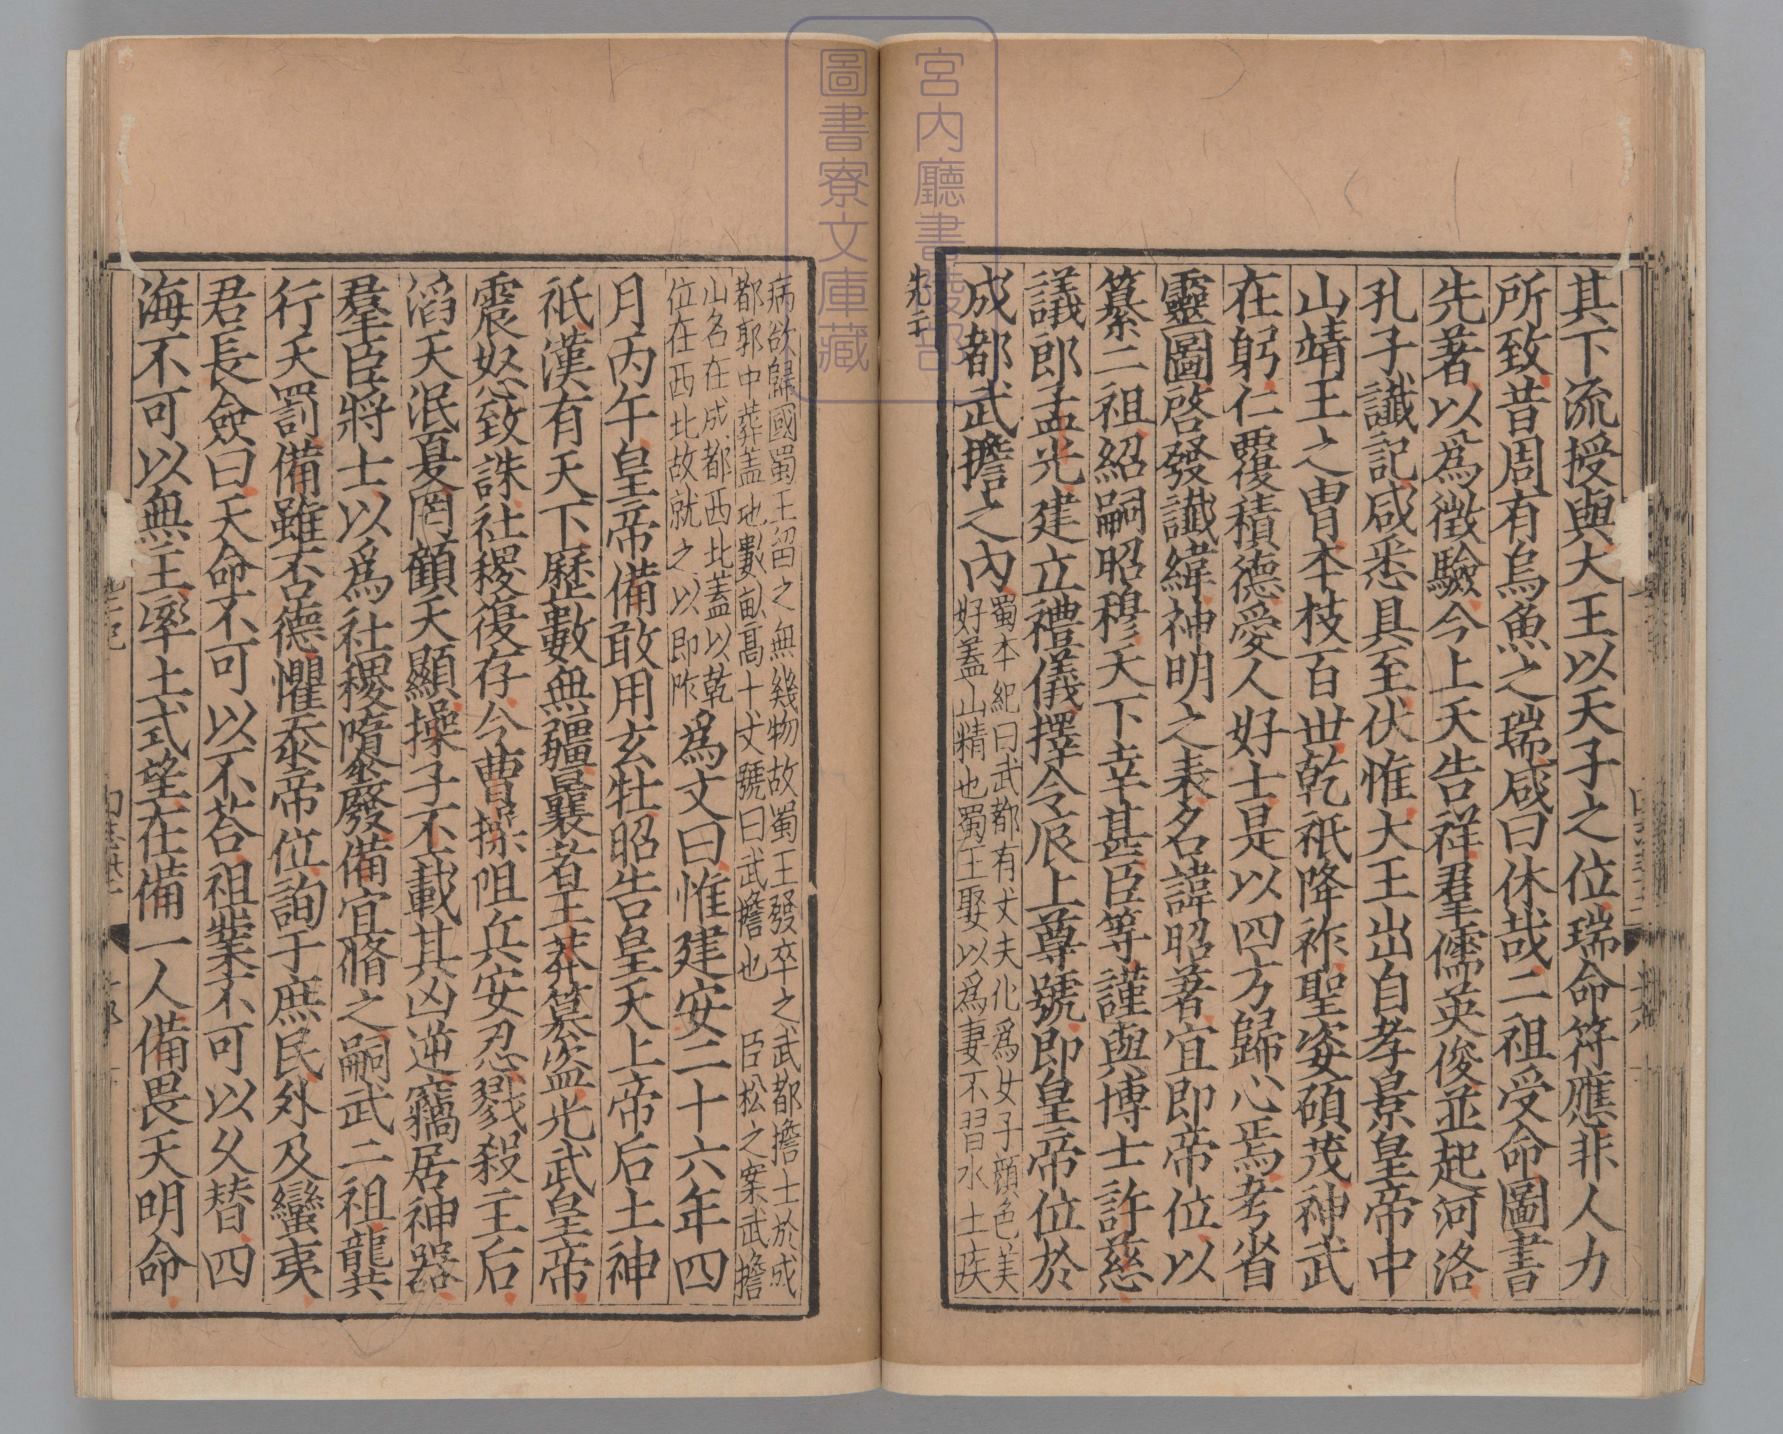 其下流授與大王以天子之位瑞命符應非人力
所致昔周有烏魚之瑞咸曰休哉二祖受命圖書
先著以爲徵驗今上天告祥羣儒英俊並起河洛
孔子讖記咸悉具至伏惟大王出自孝景皇帝中
山靖王之胄本枝百世乾祇降祚聖姿碩茂神武
在躬仁覆積德愛人好士是以四方歸心焉考省
靈圖啓發讖緯神明之表名諱昭著宜即帝位以
纂二祖紹嗣昭穆天下幸甚臣等謹與博士許慈
議郎孟光建立禮儀擇令辰上尊號即皇帝位於
成都武擔之內
蜀本紀曰武都有丈夫化爲女子顔色美
好蓋山精也蜀王娶以爲妻不習水土疾
先主
病欲歸國蜀王留之無幾物故蜀王發卒之武都擔士於成
都郭中葬蓋地數畝高十丈號曰武擔也 臣松之案武擔
山名在成都西北蓋以乾
位在西北故就之以即阼
爲文曰惟建安二十六年四
月丙午皇帝備敢用玄牡昭告皇天上帝后土神
祇漢有天下歷數無疆曩者王莽篡盜光武皇帝
震怒致誅社稷復存今曹操阻兵安忍戮殺主后
滔天泯夏罔顧天顯操子丕載其凶逆竊居神器
羣臣將士以爲社稷隳廢備宜脩之嗣武二祖龔
行天罰備雖否德懼忝帝位詢于庶民外及蠻夷
君長僉曰天命不可以不荅祖業不可以久替四
海不可以無主率土式望在備一人備畏天明命
宮內廳書陵部
圖書寮文庫藏